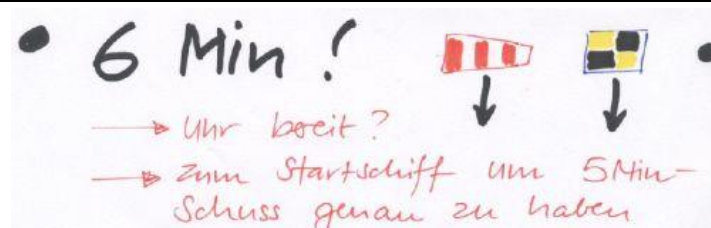 • 6 Min!
→ Uhr bereit?
→ zum Startschiff um 5Min-
Schuss genau zu haben